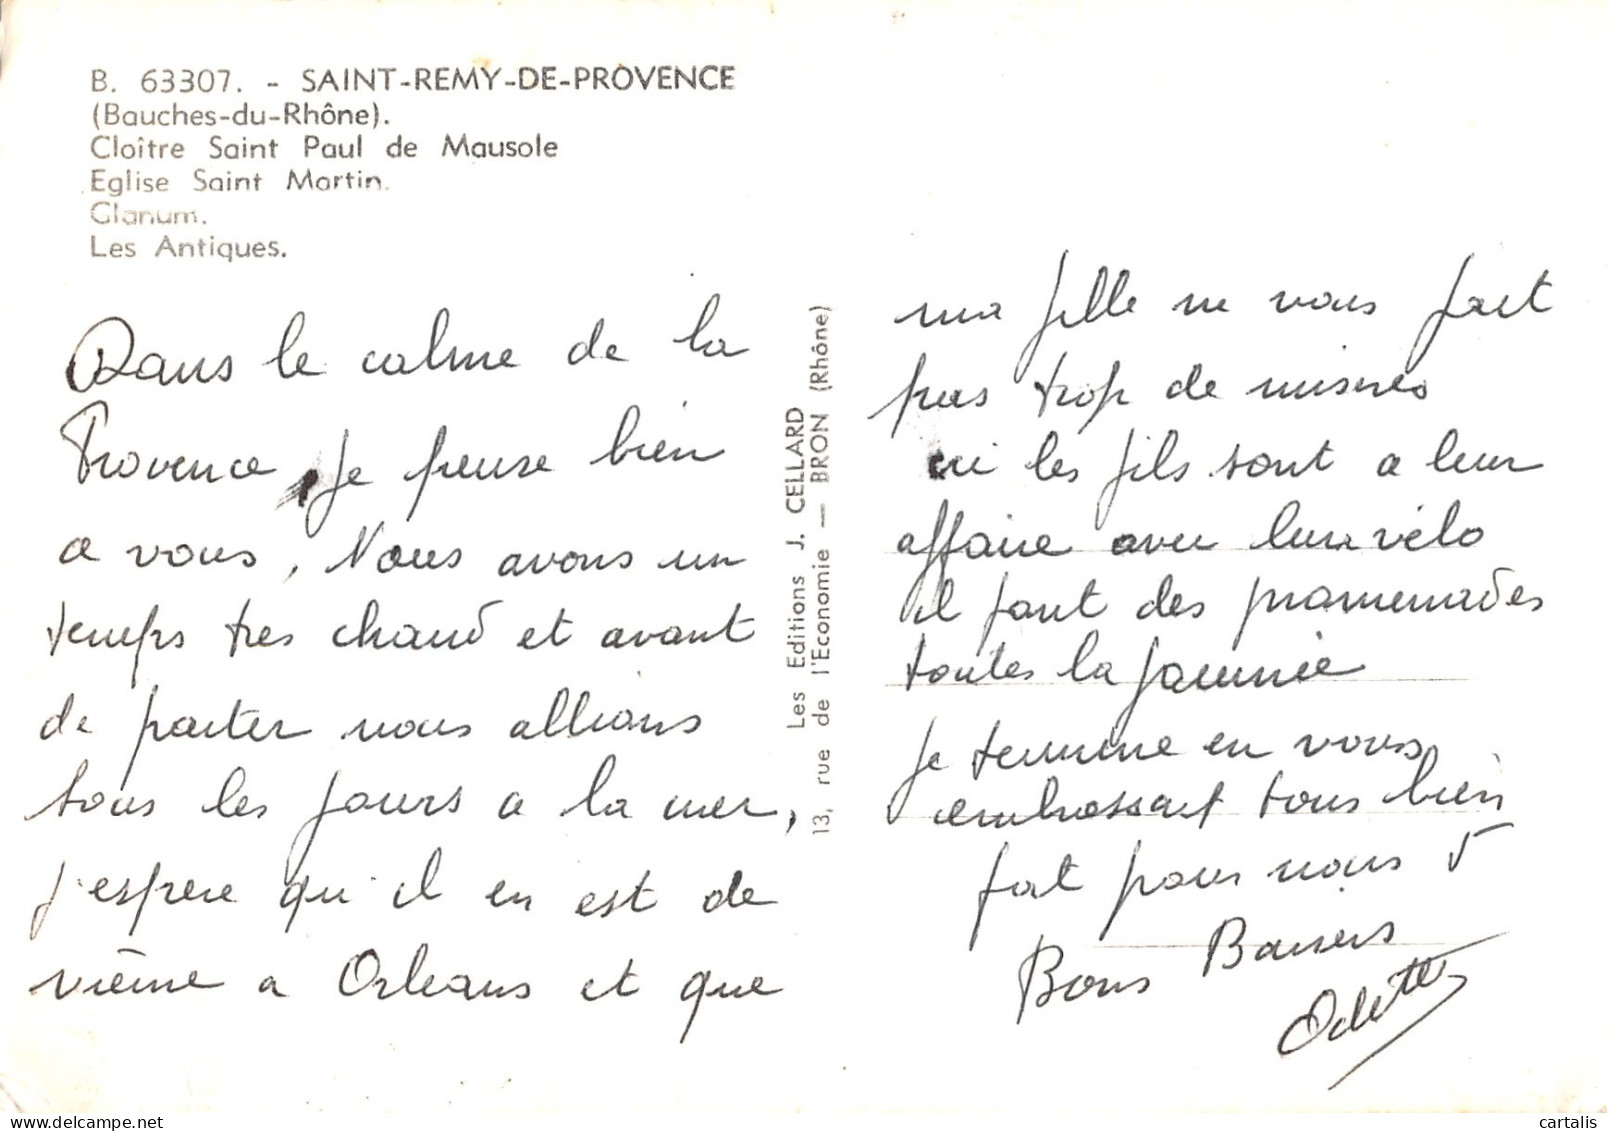 B. 63307. - SAINT-REMY-DE-PROVENCE
(Bouches-du-Rhône).
Cloître Saint Paul de Mausole
Eglise Saint Martin.
Glanum.
Les Antiques.
Dans le calme de la
Provence, Je pense bien
a vous, Nous avons un
temps tres chaud et avant
de parter nous allions
tous les jours a la mer,
j'espere qu'il en est de
vième a Orleans et que
Les Editions J. CELLARD
13, rue de l'Economie — BRON (Rhône)
ma fille ne vous fait
pas trop de miseres
ici les fils sont a leur
affaire avec leur vélo
il font des promenades
toutes la journée
Je termine en vous
embrassant tous bien
fort pour nous 5
Bons Baisers
Odette
cartalis